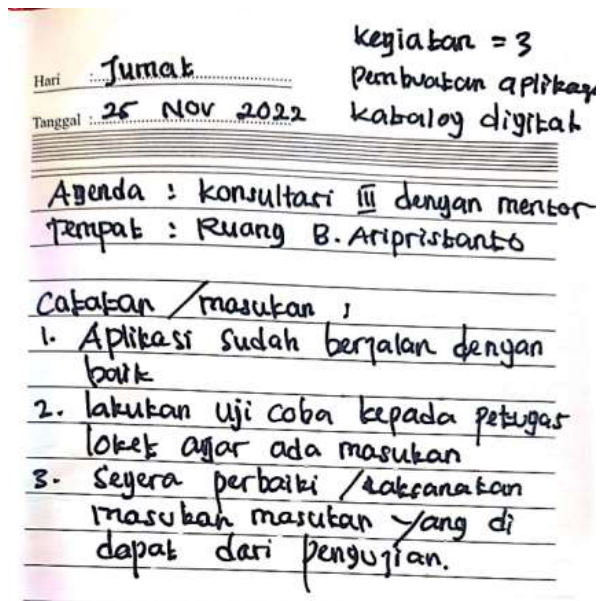 Kegiatan = 3
Hari : Jumat
Pembuatan aplikasi
Tanggal : 25 NOV 2022
katalog digital
Agenda : konsultasi III dengan mentor
Tempat : Ruang B. Aripristanto
Catatan / masukan :
1. Aplikasi sudah berjalan dengan
baik
2. lakukan uji coba kepada petugas
loket agar ada masukan
3. Segera perbaiki / laksanakan
masukan masukan yang di
dapat dari pengujian.